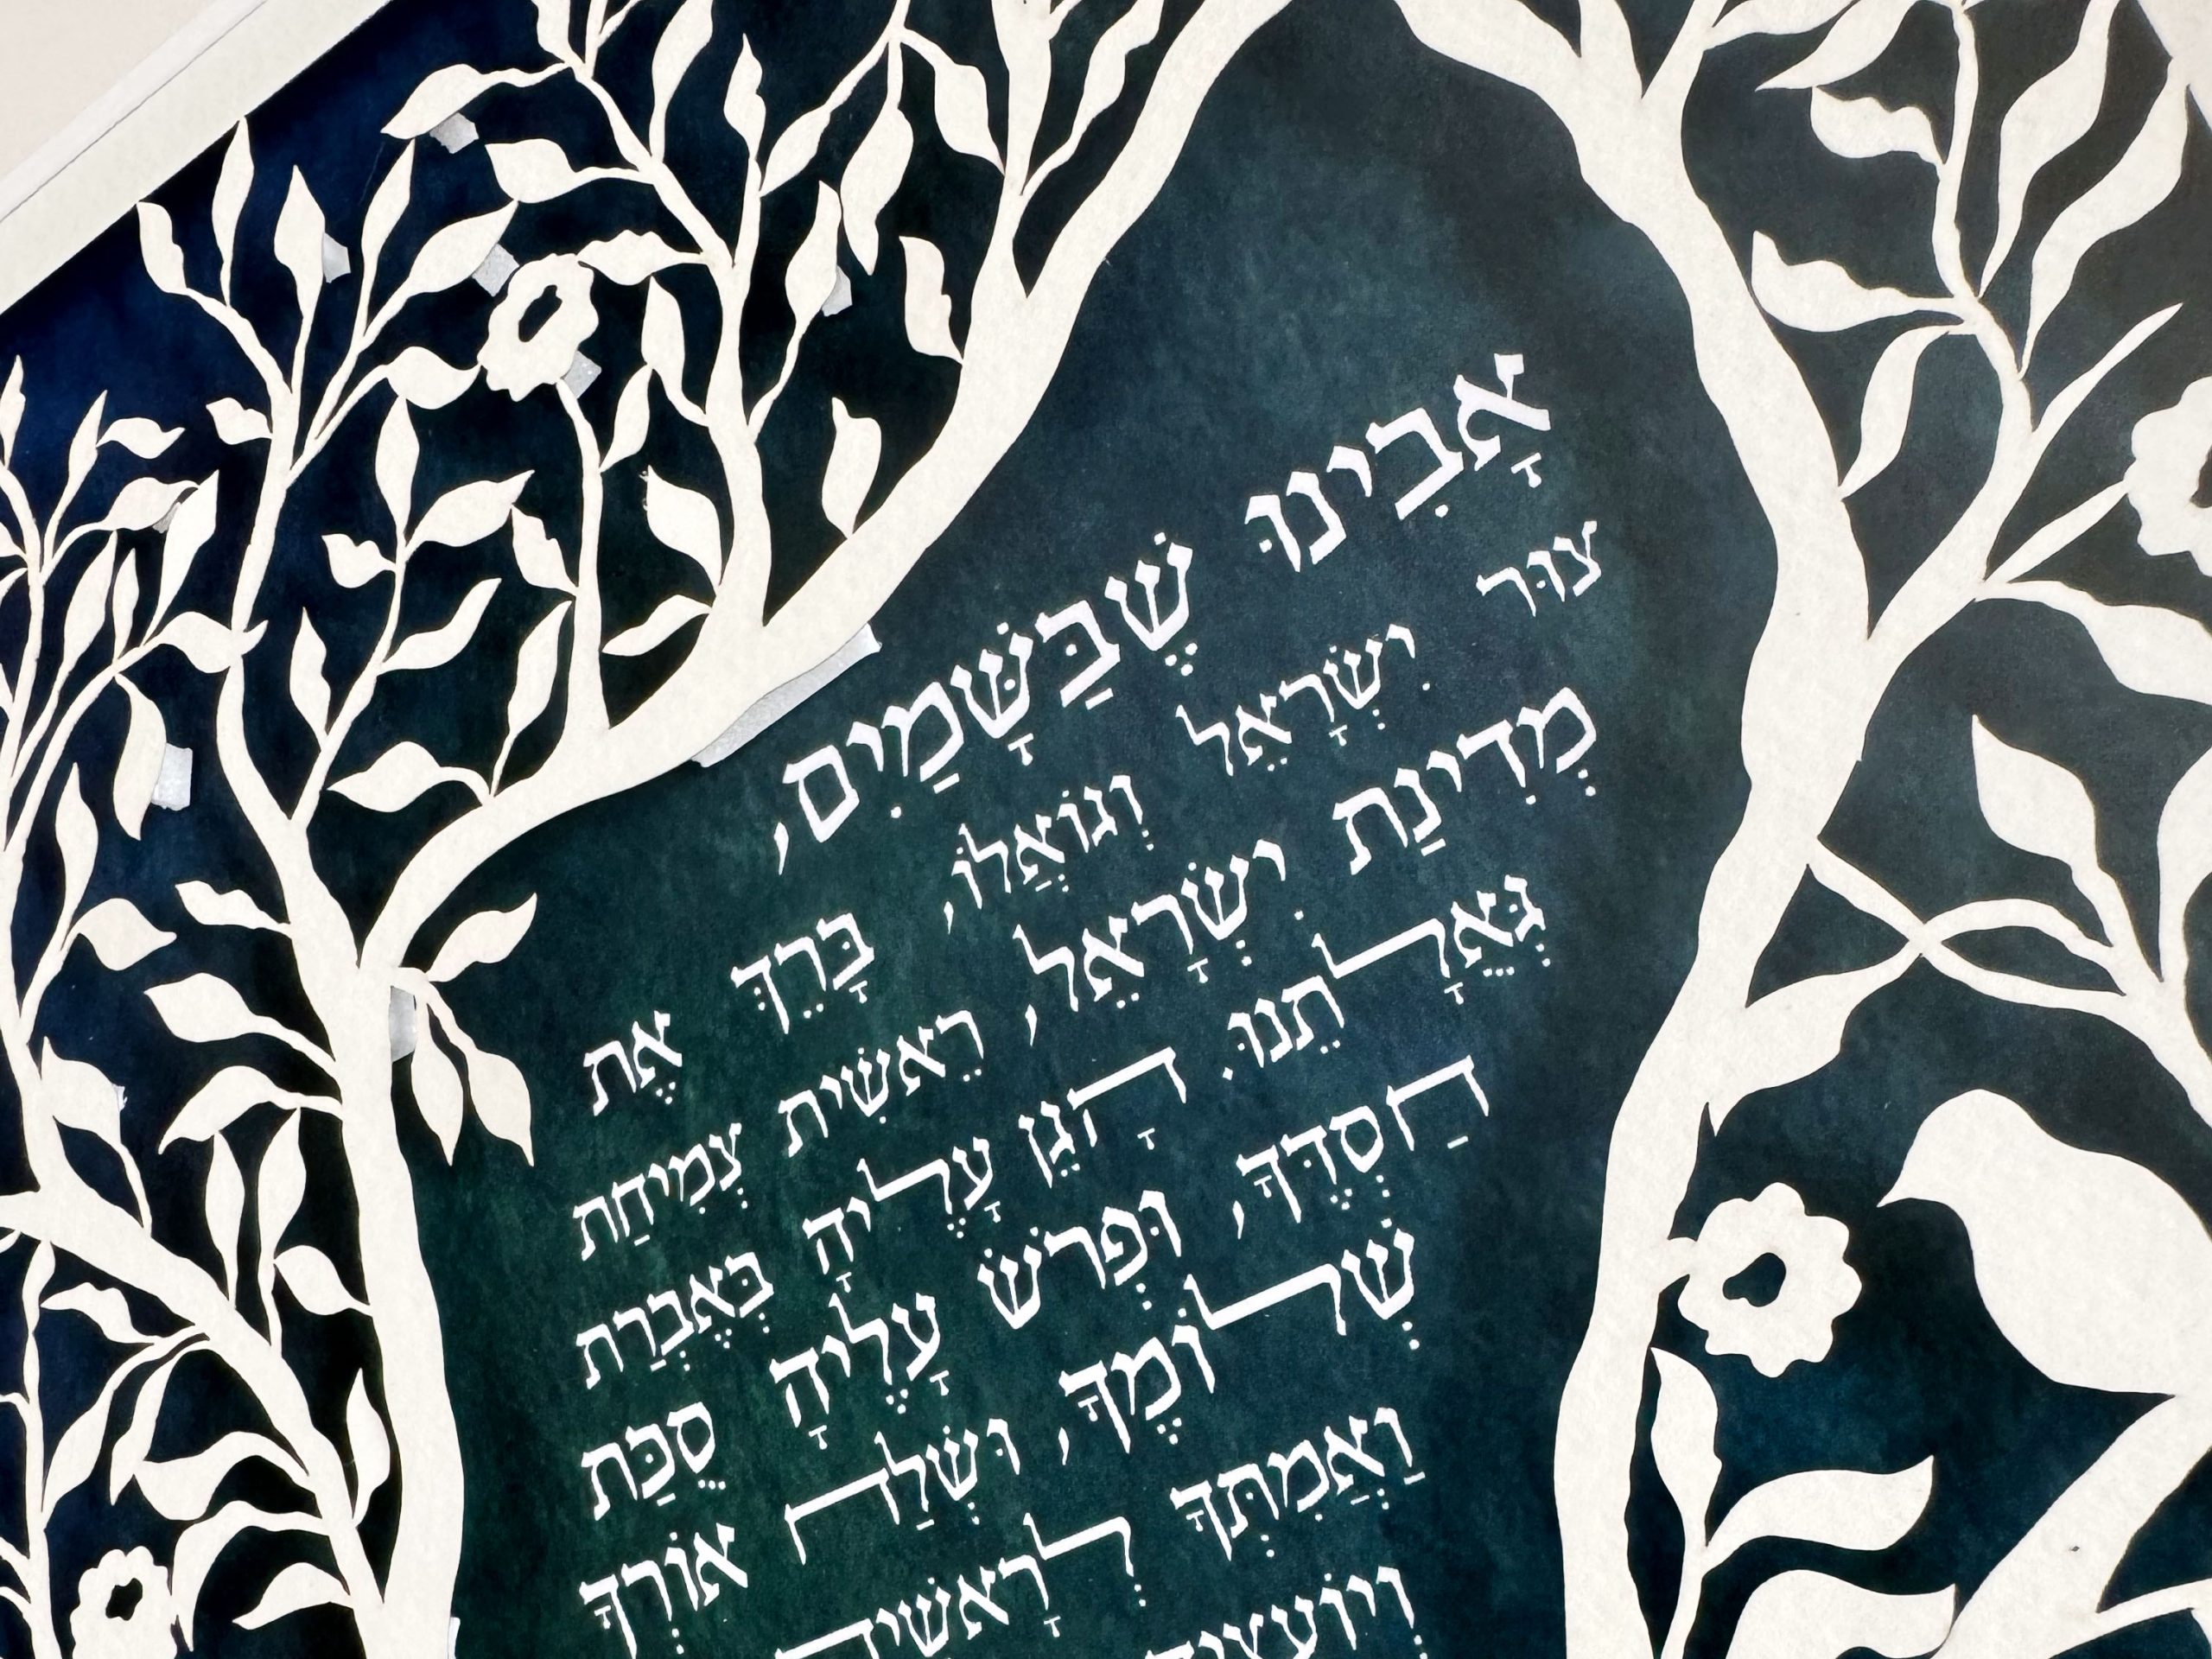 אָבִינוּ שֶׁבַּשָּׁמַיִם,
צוּר יִשְׂרָאֵל וְגוֹאֲלוֹ, בָּרֵךְ אֶת
מְדִינַת יִשְׂרָאֵל, רֵאשִׁית צְמִיחַת
גְּאֻלָּתֵנוּ. הָגֵן עָלֶיהָ בְּאֶבְרַת
חַסְדֶּךָ, וּפְרֹשׂ עָלֶיהָ סֻכַּת
שְׁלוֹמֶךָ, וּשְׁלַח אוֹרְךָ
וַאֲמִתְּךָ לְרָאשֶׁיהָ